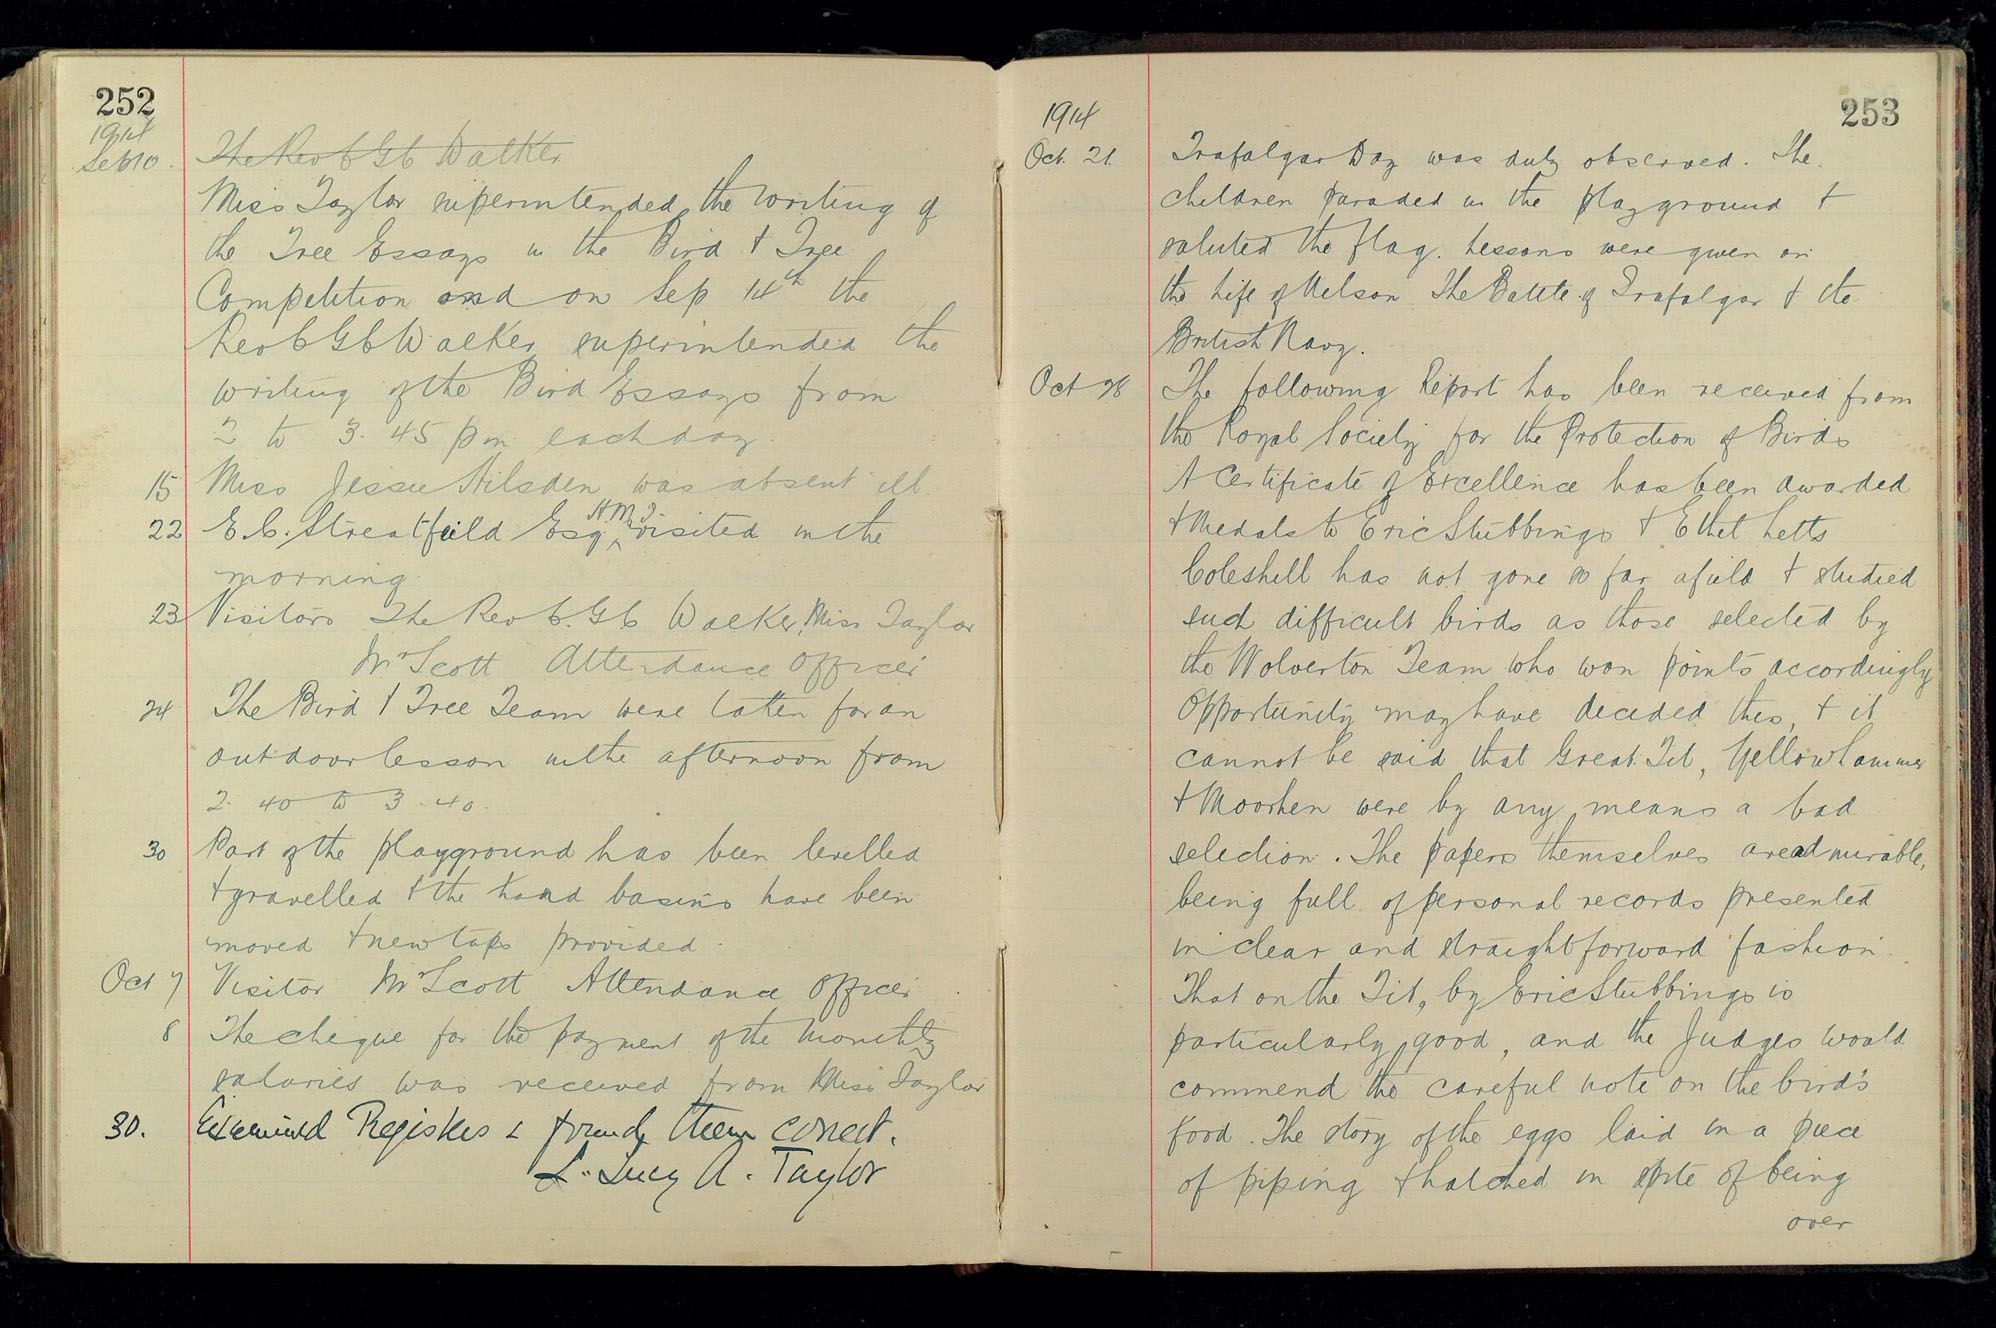 252
1914
Sep 10. The Rev C G C Walker
Miss Taylor superintended the writing of
the Tree Essays in the Bird & Tree
Competition and on Sep 14th the
Rev C G C Walker superintended the
writing of the Bird Essays from
2 to 3. 45 pm each day.
15 Miss Jessie Hilsden was absent ill.
22 E. C. Streatfeild Esq HMI visited in the
morning.
23 Visitors The Rev C. G C Walker, Miss Taylor
Mr Scott Attendance Officer
24 The Bird & Tree Team were taken for an
outdoor lesson in the afternoon from
2. 40 to 3. 40.
30 Part of the playground has been levelled
& gravelled & the hand basins have been
moved & new taps provided.
Oct 7 Visitor Mr Scott Attendance Officer.
8 The cheque for the payment of the monthly
salaries was received from Miss Taylor
30. Examined Registers & found them correct.
L. Lucy A. Taylor
253
1914
Oct. 21. Trafalgar Day was duly observed. The
children paraded in the playground &
saluted the flag. Lessons were given on
the Life of Nelson The Battle of Trafalgar & the
British Navy.
Oct 28 The following Report has been received from
the Royal Society for the Protection of Birds
A Certificate of Excellence has been awarded
& Medals to Eric Stubbings & Ethel Letts
Coleshill has not gone so far afield & studied
such difficult birds as those selected by
the Wolverton Team who won points accordingly
Opportunity may have decided this, & it
cannot be said that Great Tit, Yellowhammer
& Moorhen were by any means a bad
selection. The papers themselves are admirable,
being full of personal records presented
in clear and straightforward fashion.
That on the Tit, by Eric Stubbings is
particularly good, and the Judges would
commend the careful note on the bird's
food. The story of the eggs laid in a piece
of piping & hatched in spite of being
over